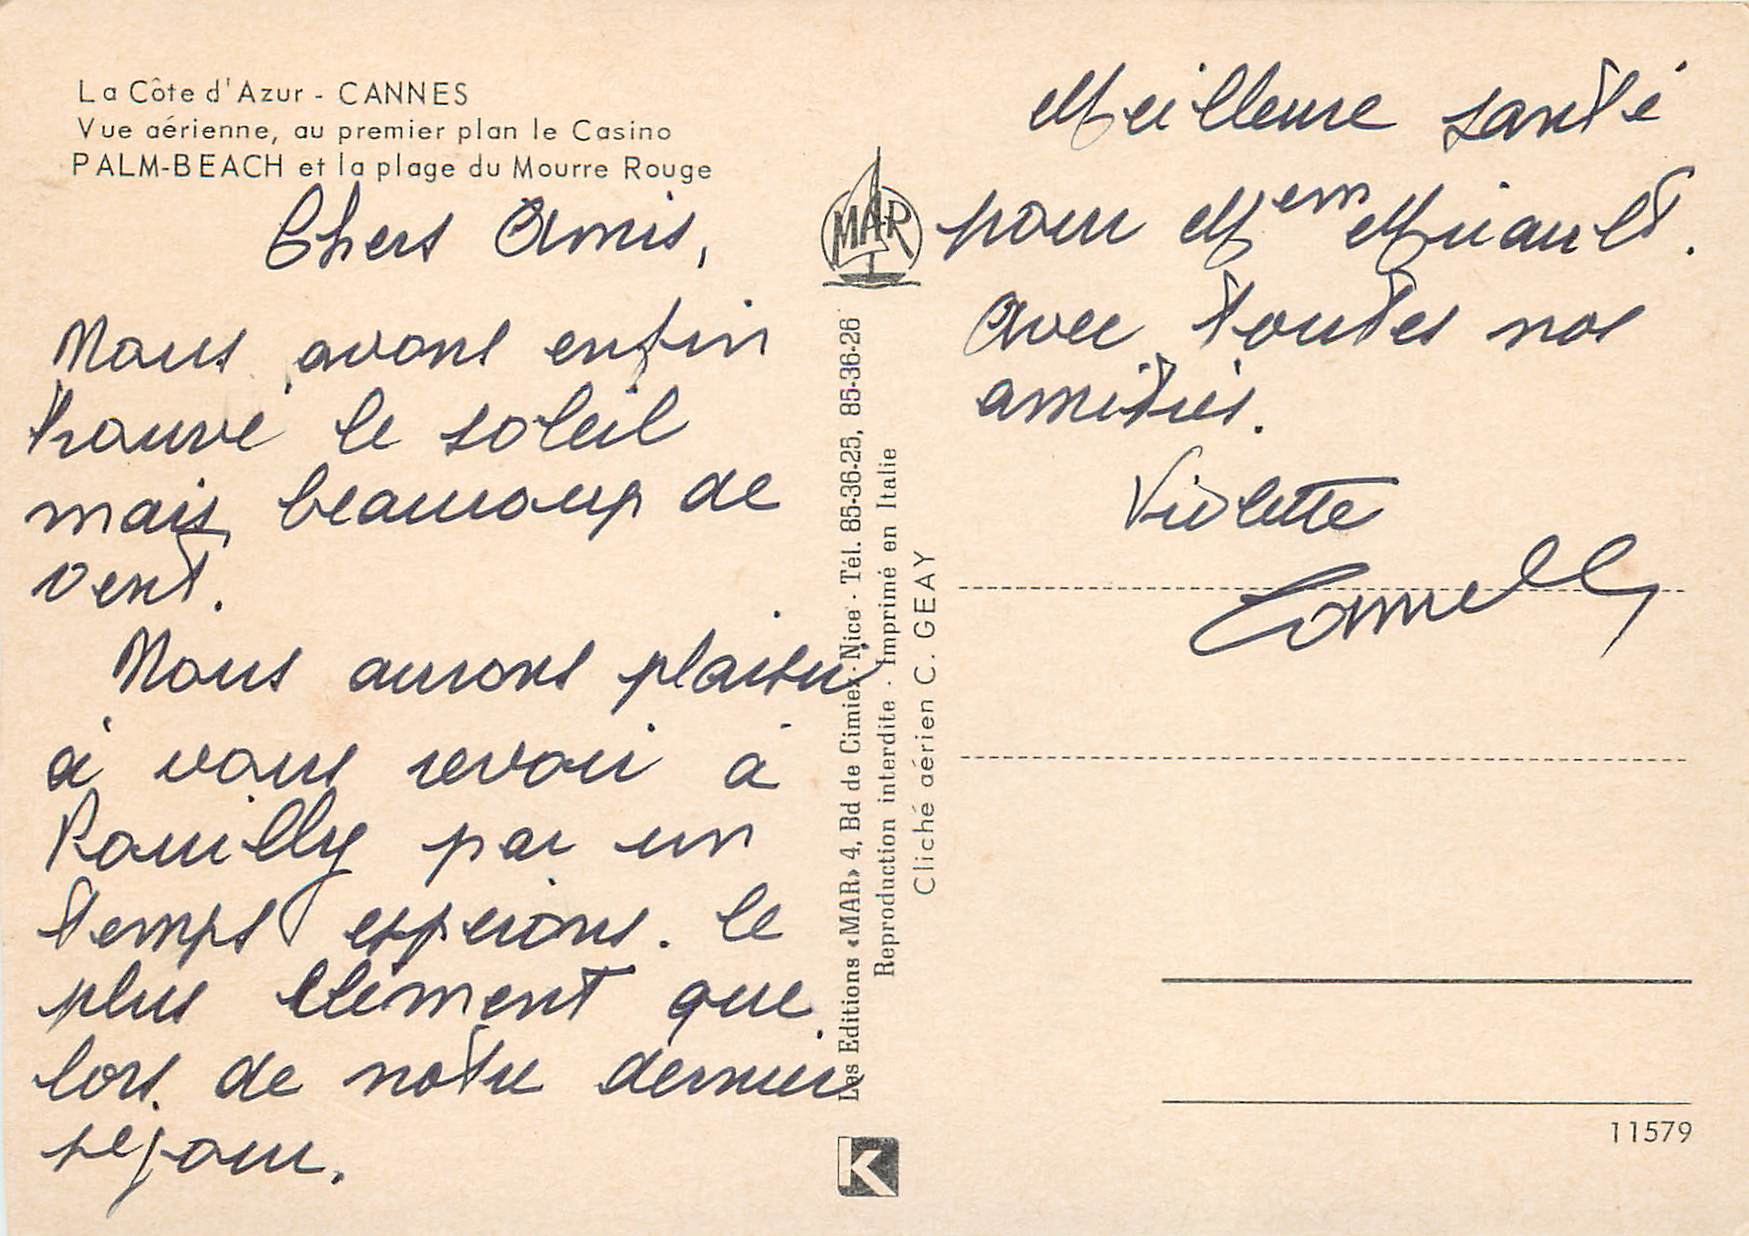 La Côte d'Azur - CANNES
Vue aérienne, au premier plan le Casino
PALM-BEACH et la plage du Mourre Rouge
Chers Amis,
Nous avons enfin
trouvé le soleil
mais beaucoup de
vent.
Nous aurons plaisir
à vous revoir à
Rouilly par un
temps espérons. le
plus clément que
lors de notre dernier
séjour.
MAR
Les Editions «MAR» 4, Bd de Cimiez - Nice - Tél. 85-36-25, 85-36-26
Reproduction interdite - Imprimé en Italie
Cliché aérien C. GEAY
K
Meilleure santé
pour Mem Miault.
Avec toutes nos
amitiés.
Violette
11579